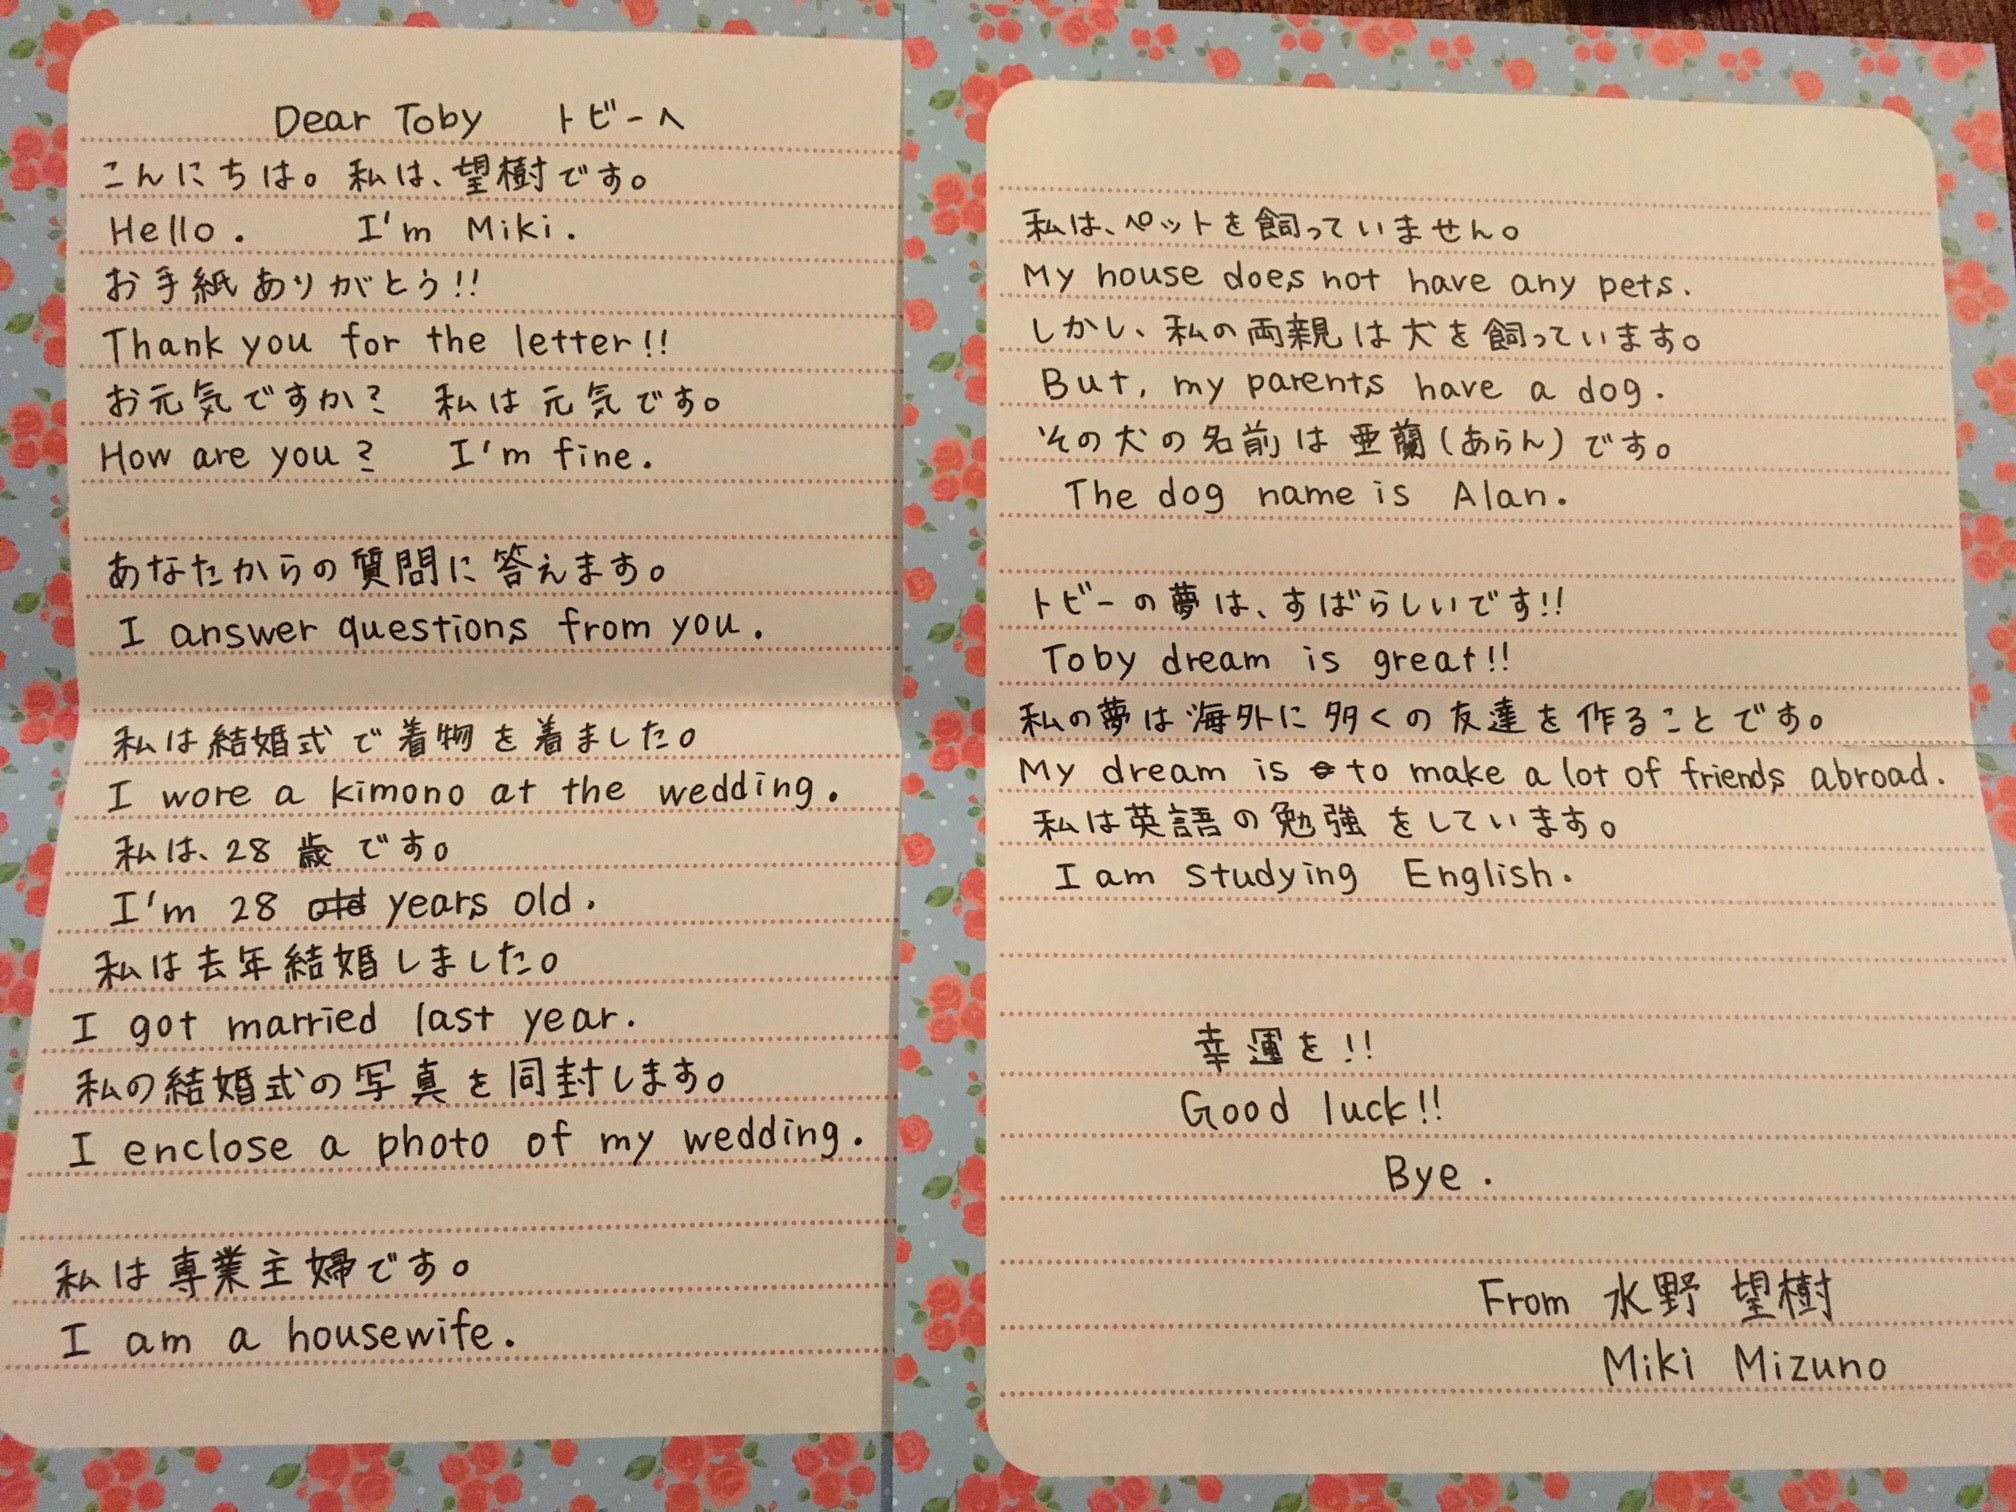 Dear Toby トビーへ
こんにちは。私は、望樹です。
Hello. I'm Miki.
お手紙ありがとう!!
Thank you for the letter!!
お元気ですか? 私は元気です。
How are you? I'm fine.
あなたからの質問に答えます。
I answer questions from you.
私は結婚式で着物を着ました。
I wore a kimono at the wedding.
私は、28歳です。
I'm 28 old years old.
私は去年結婚しました。
I got married last year.
私の結婚式の写真を同封します。
I enclose a photo of my wedding.
私は専業主婦です。
I am a housewife.
私は、ペットを飼っていません。
My house does not have any pets.
しかし、私の両親は犬を飼っています。
But, my parents have a dog.
その犬の名前は亜蘭(あらん)です。
The dog name is Alan.
トビーの夢は、すばらしいです!!
Toby dream is great!!
私の夢は海外に多くの友達を作ることです。
My dream is to make a lot of friends abroad.
私は英語の勉強をしています。
I am studying English.
幸運を!!
Good luck!!
Bye.
From 水野 望樹
Miki Mizuno